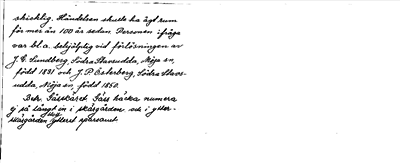 skicklig. Händelsen skulle ha ägt rum
för mer än 100 år sedan. Personen ifråga
var bl.a. behjälplig vid förlösningen av
J. E. Lundberg, Södra Stavsudda, Möja sn,
född 1831 och J. P. Österberg, Södra Stavs-
udda, Möja sn, född 1850.
Betr. Gåsskäret. Gäss häcka numera
ej så långt in i skärgården och i ytter-
skärgården ytterst sparsamt